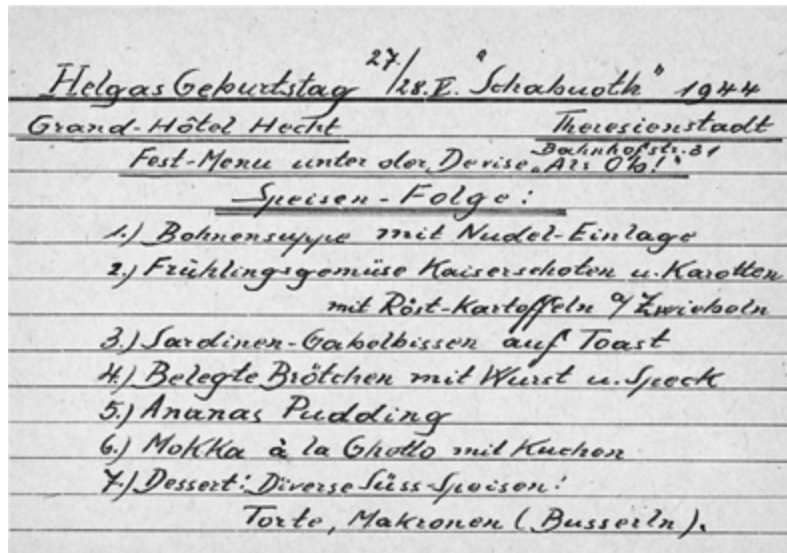 Helgas Geburtstag 27./28.V. "Schabuoth" 1944
Grand-Hôtel Hecht Theresienstadt
Bahnhofstr. 31
Fest-Menu unter der Devise „Ars 0%!"
Speisen-Folge:
1.) Bohnensuppe mit Nudel-Einlage
2.) Frühlingsgemüse Kaiserschoten u. Karotten
mit Röst-Kartoffeln a/Zwiebeln
3.) Sardinen-Gabelbissen auf Toast
4.) Belegte Brötchen mit Wurst u. Speck
5.) Ananas Pudding
6.) Mokka à la Ghetto mit Kuchen
7.) Dessert: Diverse Süss-Speisen:
Torte, Makronen (Busserln).